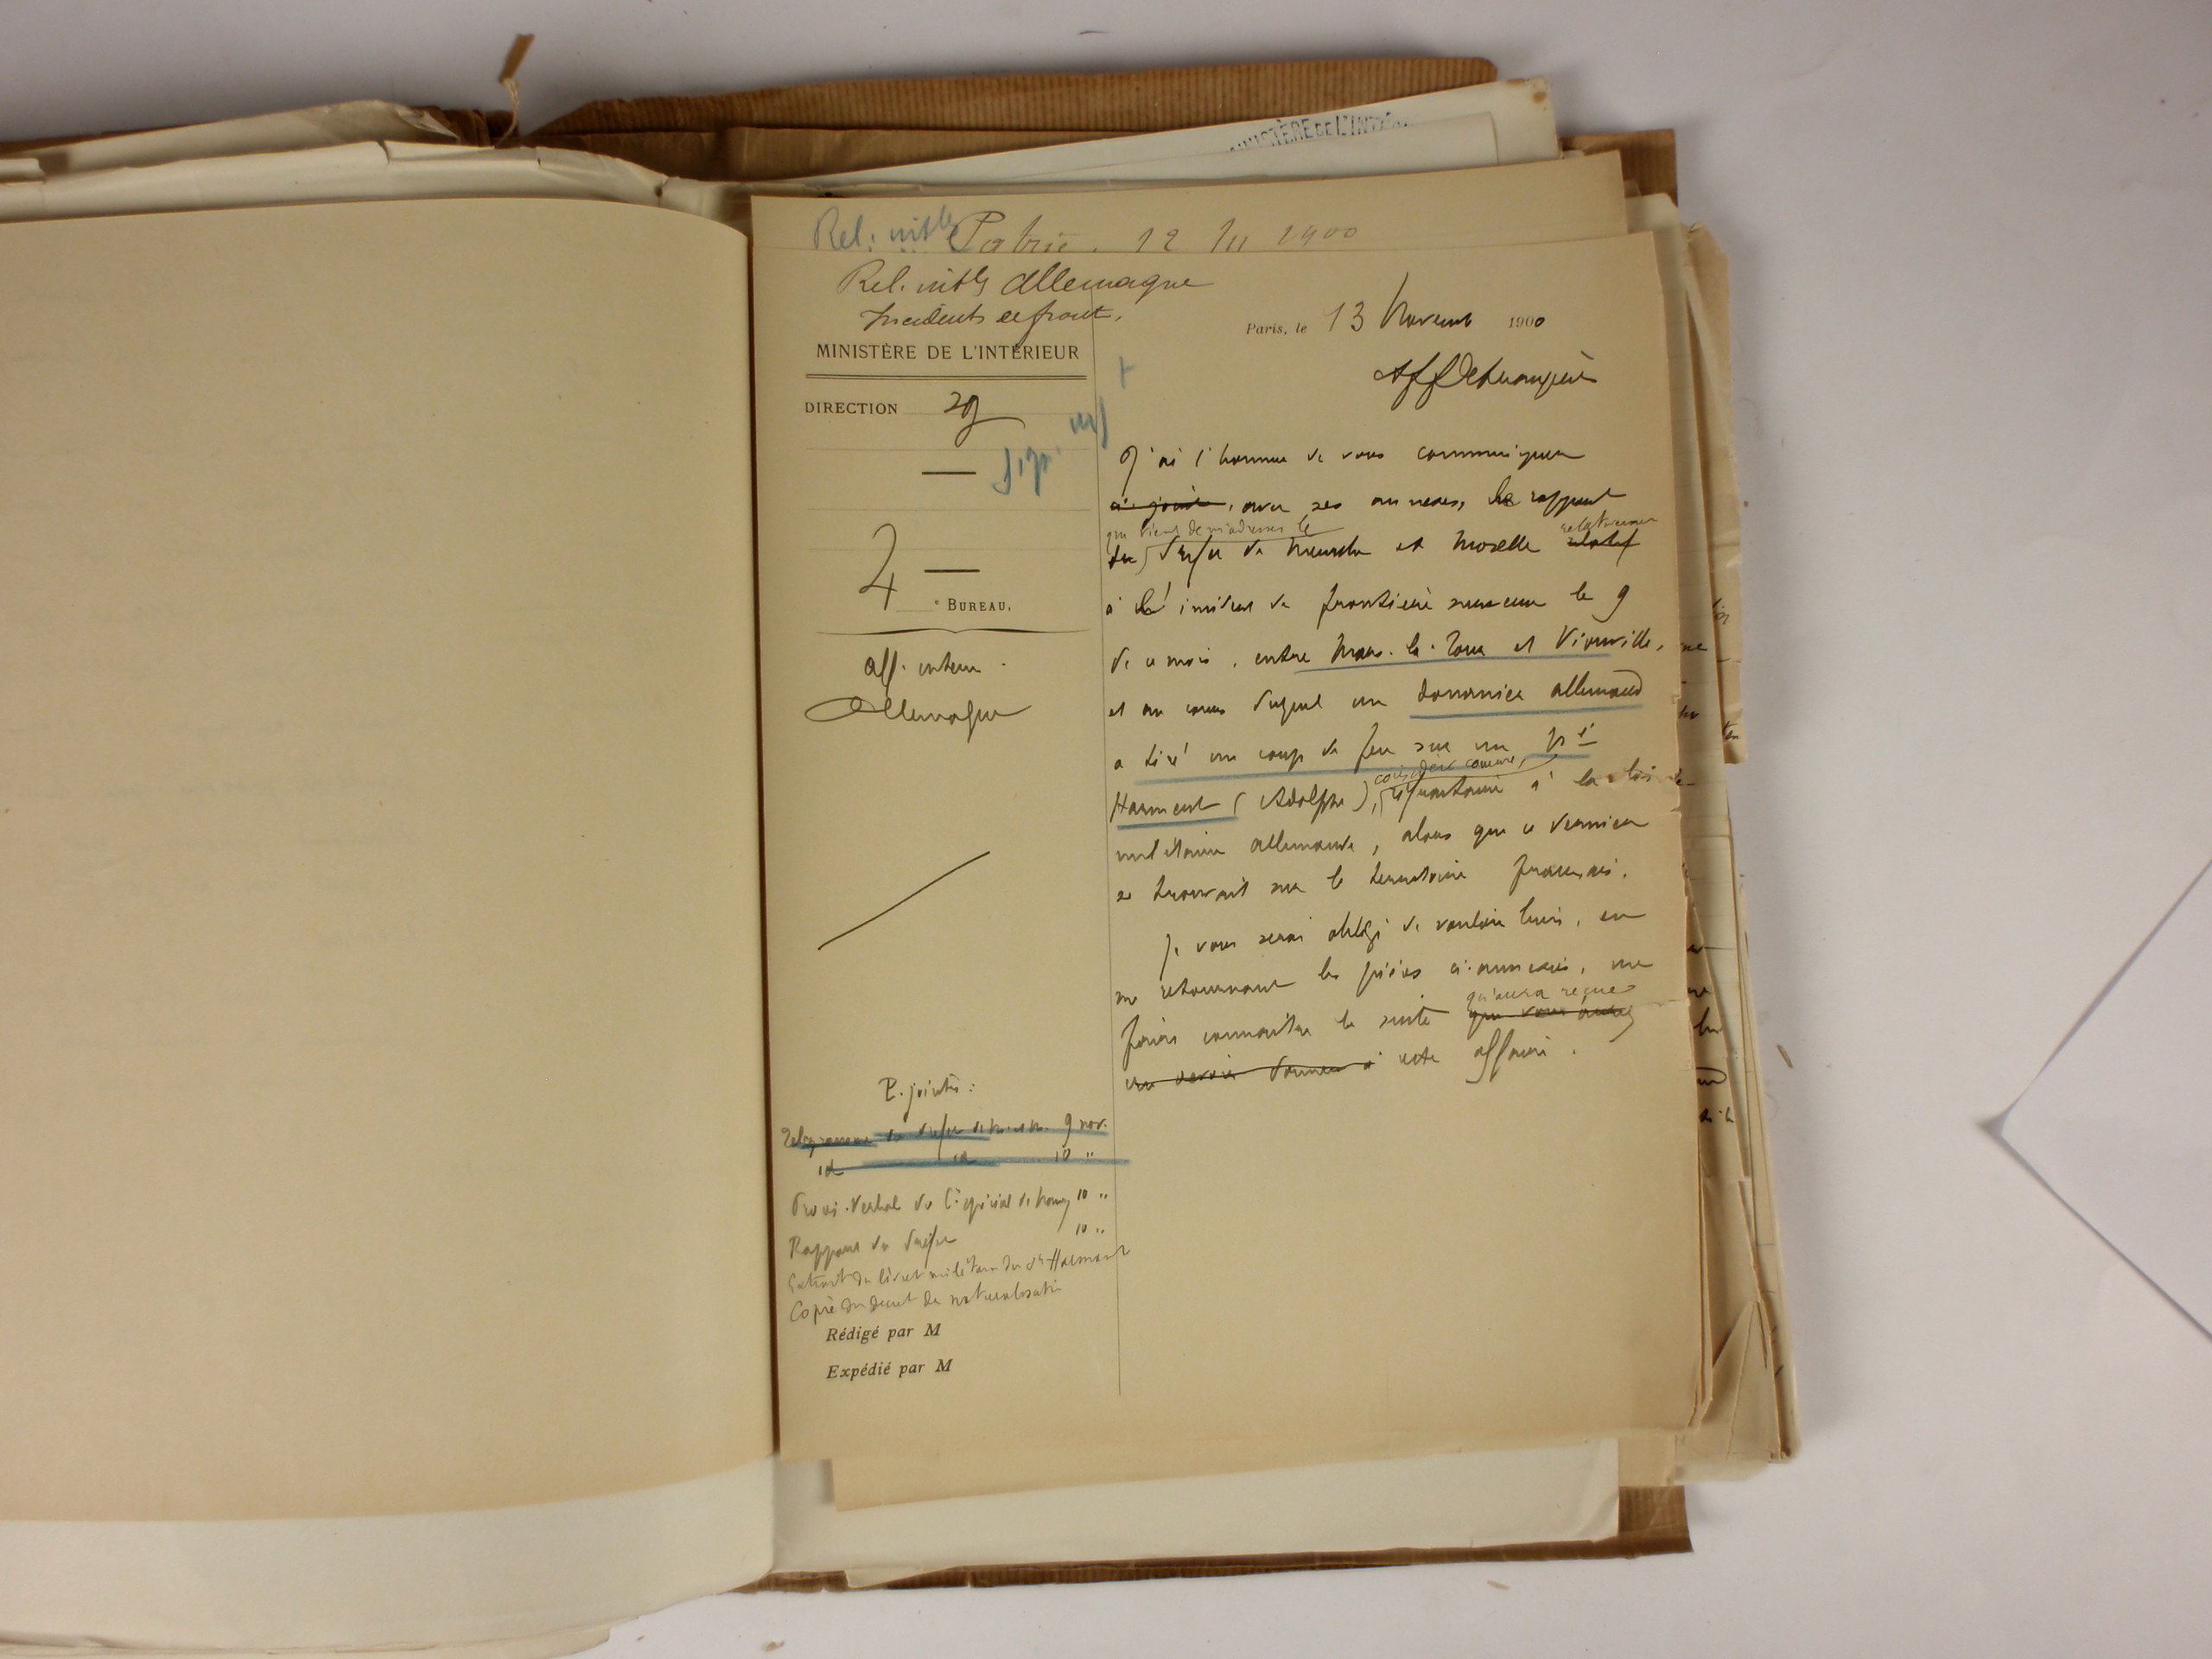 MINISTÈRE DE L'INTÉ
Rel. intles Patrie. 12 1900
Rel. intles Allemagne
Incidents de front.
MINISTÈRE DE L'INTÉRIEUR
DIRECTION Sg
4
e BUREAU.
Aff. intern.
Allemagne
Paris, le 13 Novemb 1900
Aff Etrangères
J'ai l'honneur de vous communiquer
ci-joint, avec ses annexes, le rapport
que vient de m'adresser le relativement
du Préfet de Meurthe et Moselle relatif
à l'incident de frontière survenu le 9
de ce mois, entre Mars-la-Tour et Vionville,
et au cours duquel un douanier allemand
a tiré un coup de feu sur un né
considéré comme
Harment (Adolphe), réfractaire à la loi
militaire allemande, alors que ce dernier
se trouvait sur le territoire français.
Je vous serai obligé de vouloir bien, en
me retournant les pièces ci-annexées, me
qu'aura reçue
faire connaître la suite que vous aurez
cru devoir donner à cette affaire.
P. jointes :
Télégramme du Préfet de M. et M. 9 nov.
id id 10 "
Procès-Verbal du Cre spécial de Nancy 10 "
Rapport du Préfet 10 "
Extrait du livret militaire du Sr Harment
Copie du décret de naturalisatin
Rédigé par M
Expédié par M